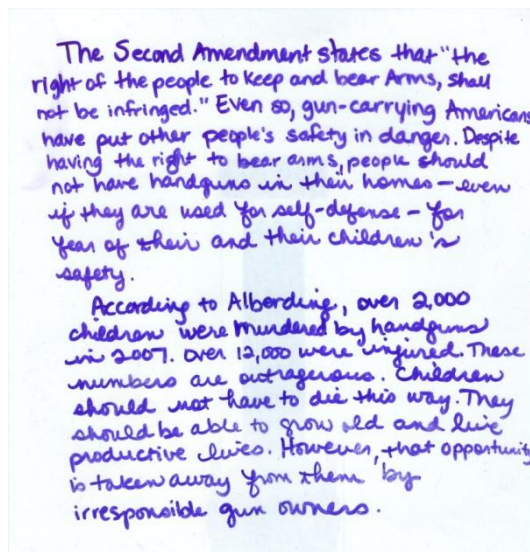 The Second Amendment states that "the
right of the people to keep and bear Arms, shall
not be infringed." Even so, gun-carrying Americans
have put other people's safety in danger. Despite
having the right to bear arms, people should
not have handguns in their homes – even
if they are used for self-defense – for
fear of their and their children's
safety.
According to Alberding, over 2,000
children were murdered by handguns
in 2007. Over 12,000 were injured. These
numbers are outrageous. Children
should not have to die this way. They
should be able to grow old and live
productive lives. However, that opportunity
is taken away from them by
irresponsible gun owners.